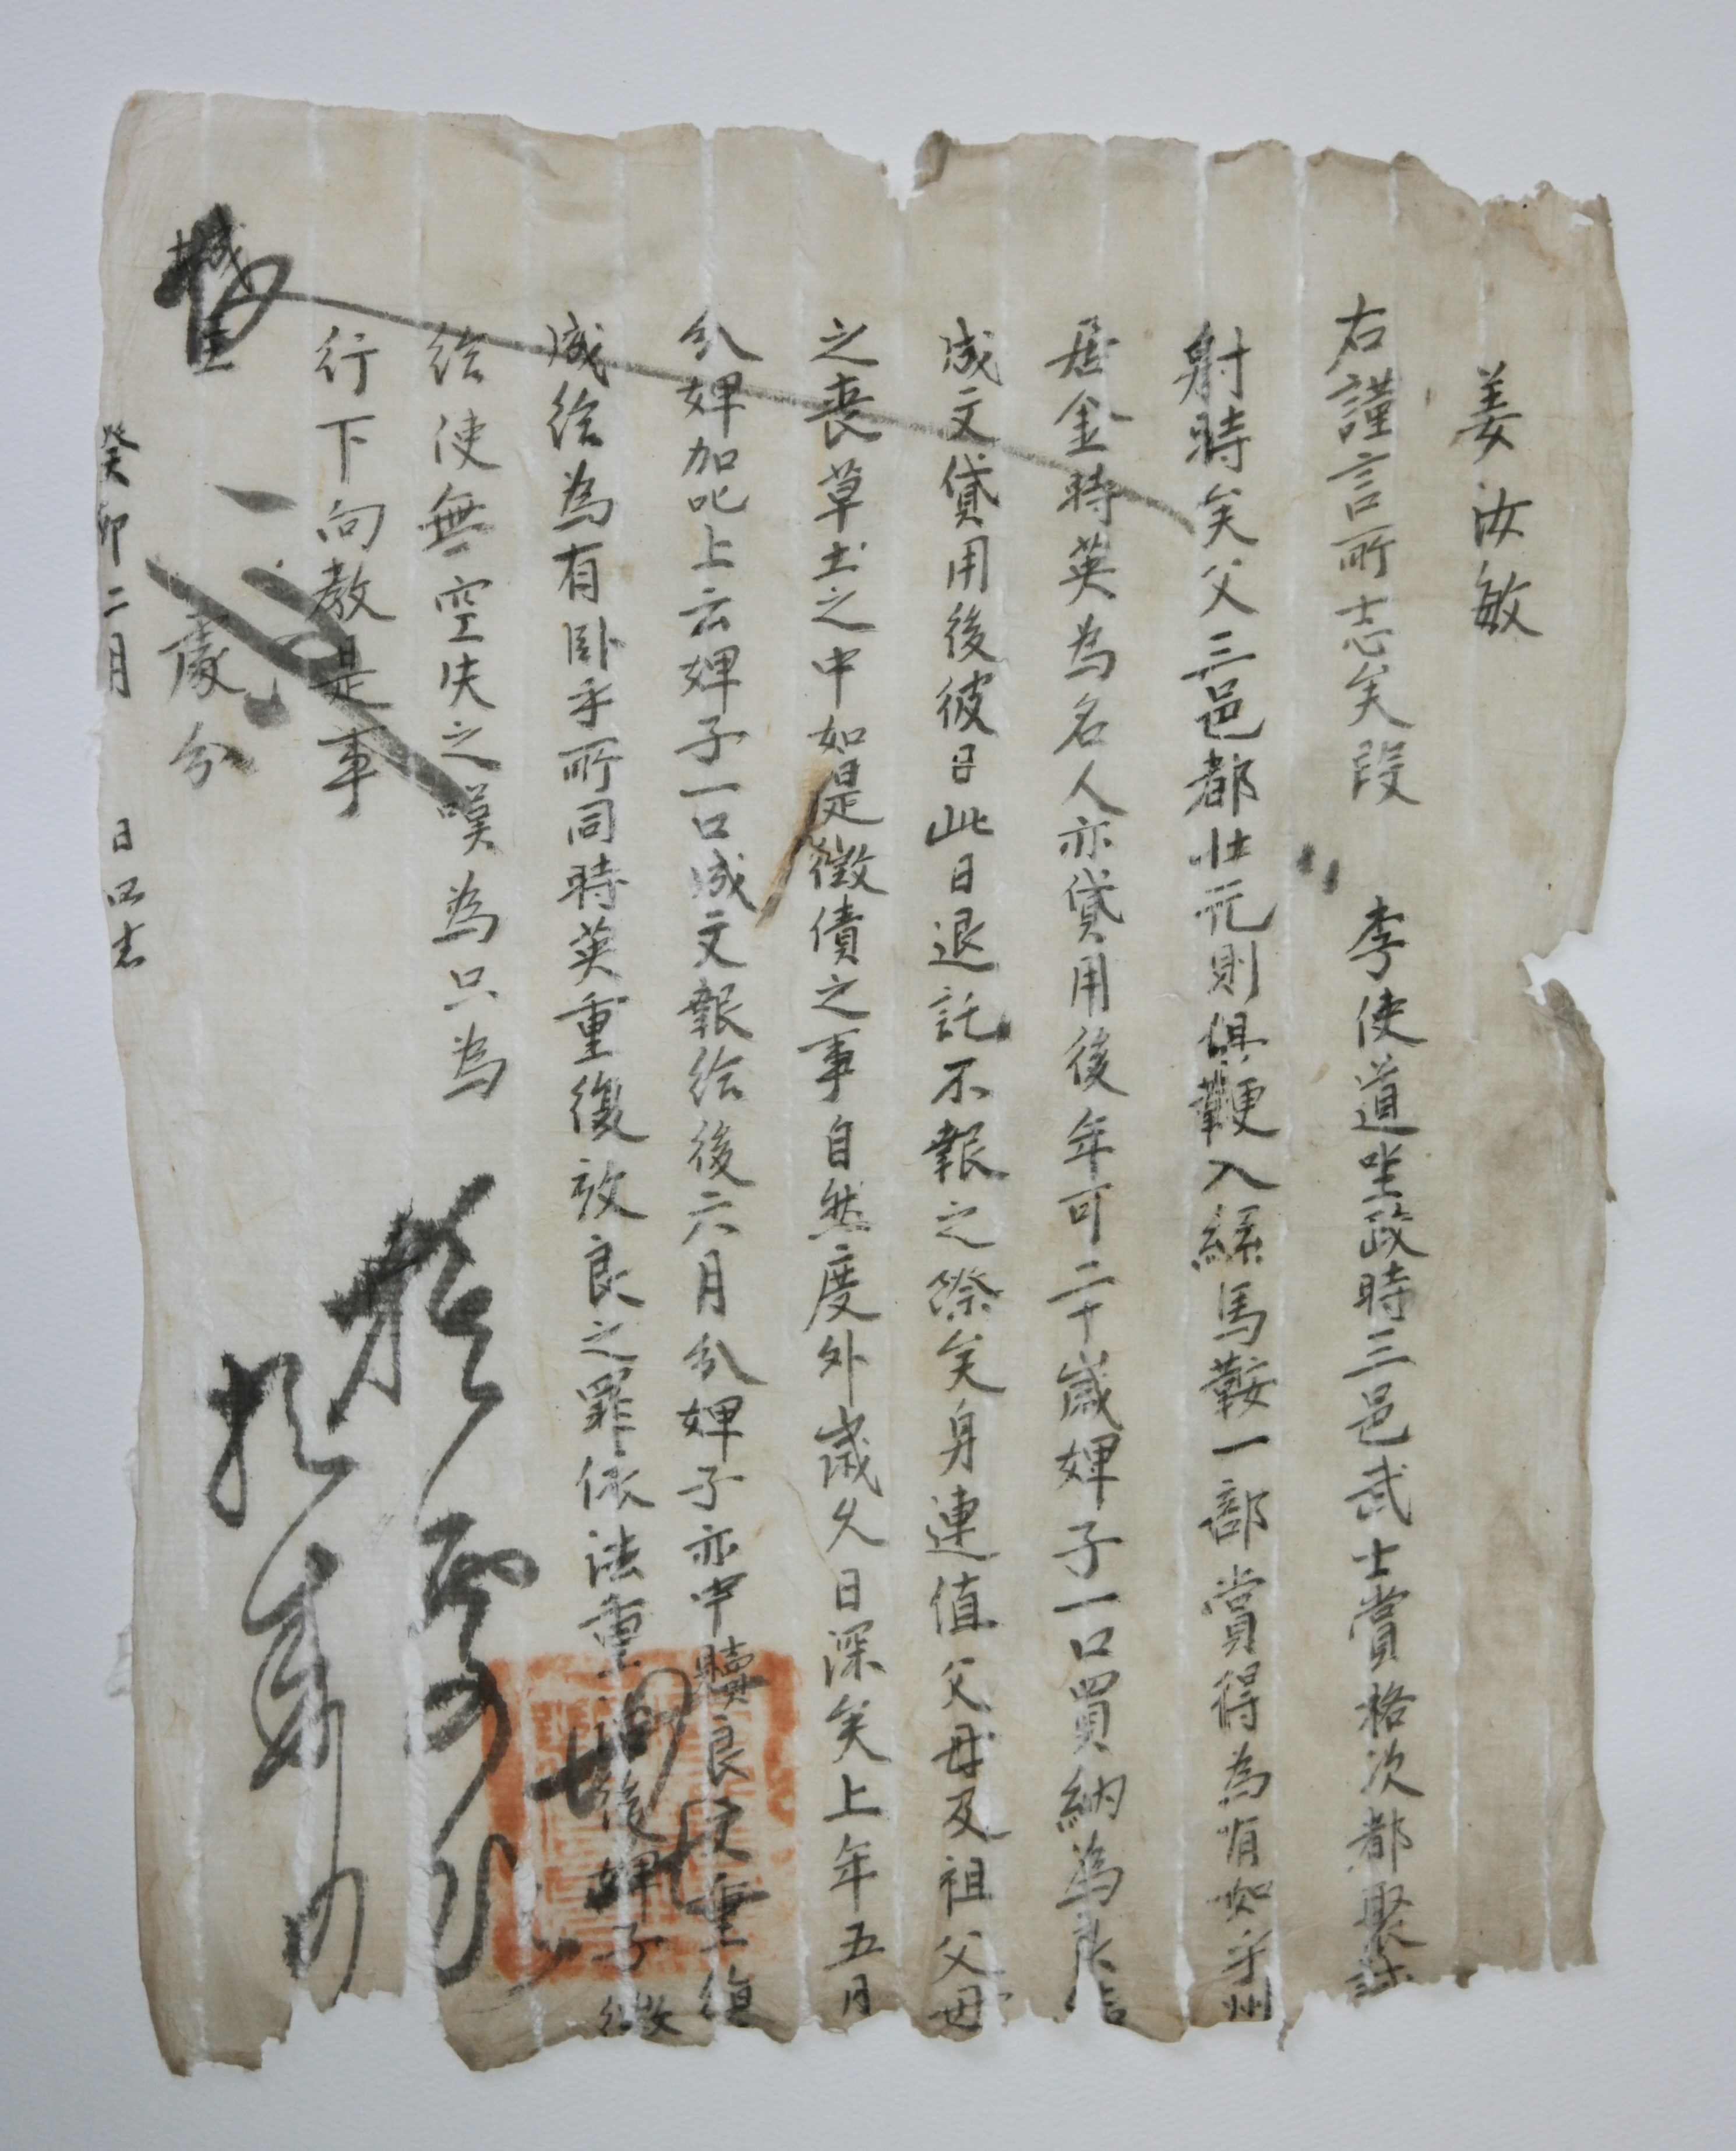 姜汝敏
右謹言所志矣段 李使道坐政時三邑武士賞格次都聚
射時矣父三邑都壯元則俱鞭入絲馬鞍一部賞得為有如乎州
居金時英為名人亦貸用後年可二十歲婢子一口買納為
成文貸用後彼日此日退託不報之際矣身連值父母及祖父母
之喪草土之中如是徵債之事自然度外歲久日深矣上年五月
分婢加叱上云婢子一口成文報給後六月分婢子亦中贖良是重復
成給為有臥乎所同時英重復放良之罪依法重治後婢子徵
給使無空失之嘆為只為
行下向教是事
處分
城主
癸卯二月 日所志